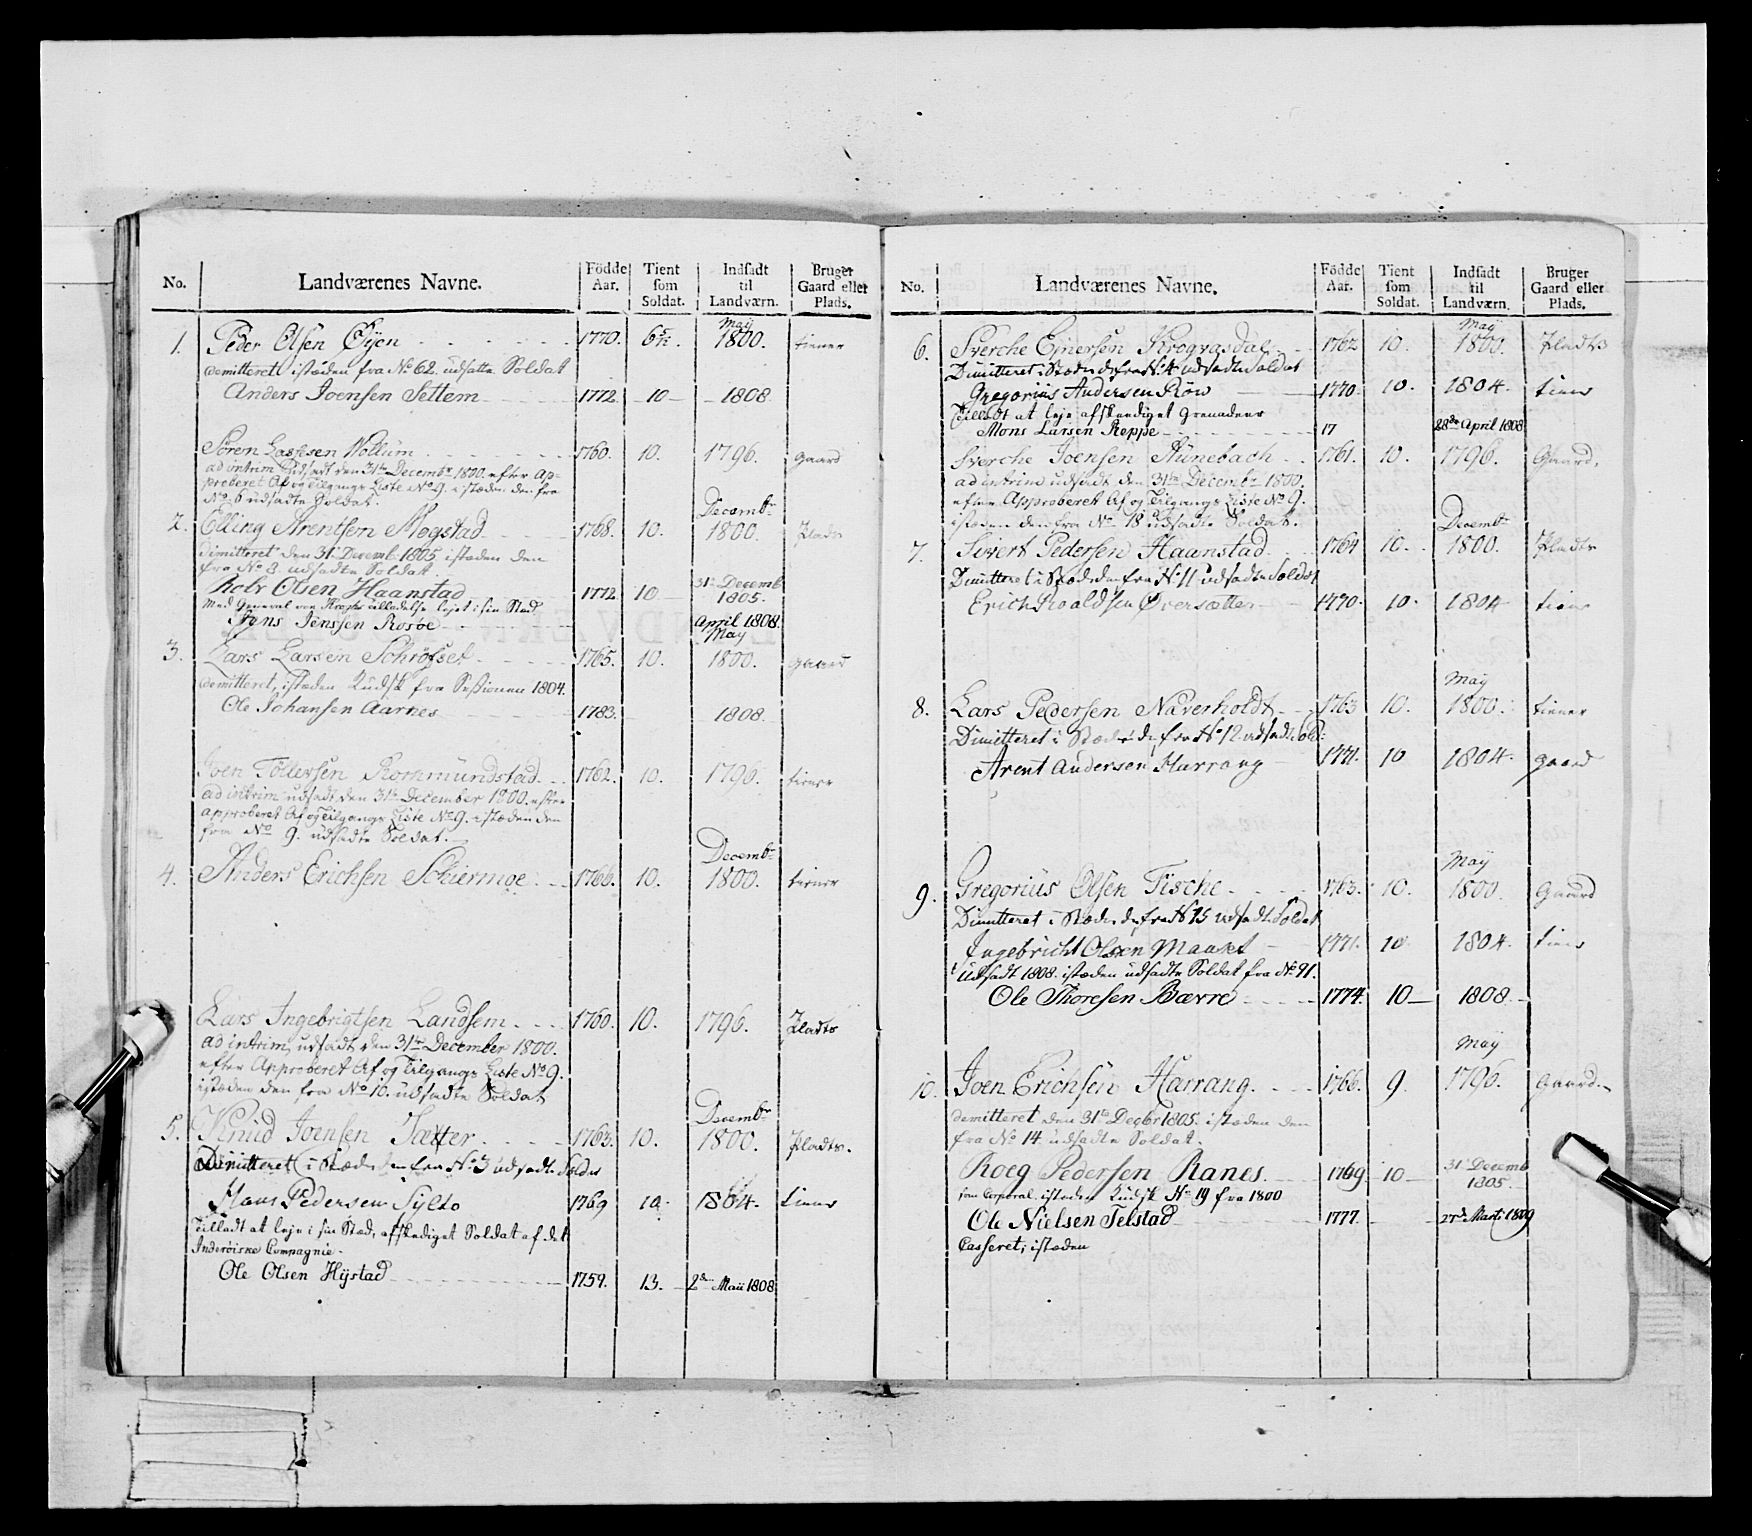 No. Landværenes Navne. Födde Aar. Tient som Soldat. Indsadt til Landværn. Bruger Gaard eller Plads.
May
1. Peder Olsen Øijen 1770. 6 5/12. 1800. tiener
demitteret istæden fra No 62. udsatte Soldat
Anders Joensen Settem 1772. 10 1808.
Sören Lassesen Vollum 1760. 10. 1796. gaard
ad intrim Indsadt den 31te Decembr 1800. efter Ap-
proberet Af og Tilgangs Liste No 9. istæden den fra
No 6 udsadte Soldat.
Decembr
2. Elling Arentsen Mogstad 1768. 10. 1800. Plads
dimitteret den 31te Decemb: 1805 istæden den
fra No 3. udsadte Soldat.
Rolv Olsen Haanstad 1772 10 31te Decemb 1805.
Med General von Kraghs tilladelse lejet i sin Stæd
Jens Jenssen Rosöe April 1808.
May
3. Lars Larsen Schröfset 1765. 10. 1800. gaard
demitteret, istæden Kudsk fra Sessionen 1804.
Ole Johansen Aarnes 1783. 1808.
Joen Tollefsen Rommundstad 1762. 10. 1796. tiener
ad intrim udsadt den 31te December 1800. efter
approberet Af og Tilgangs Liste No 9. istæden den
fra No 9. udsadte Soldat.
Decembr
4. Anders Erichsen Schiermoe 1766. 10. 1800. tiener
Lars Ingebrigtsen Landsem 1760. 10. 1796. Pladts
ad intrim, udsadt den 31te December 1800.
efter Approberet Af og Tilgangs Liste No 9.
istæden den fra No 10. udsadte Soldat
Decembr
5. Knud Joensen Sætter 1763. 10. 1800. Pladts.
Dimitteret i Stæden den fra No 3 udsadte Soldat
Hans Pedersen Sylto 1769 10. 1804. tiener
Tilladt at leje i sin Stæd, afskediget Soldat af det
Inderöiske Compagnie.
Ole Olsen Hÿstad 1759. 13. 2den Maii 1808
No. Landværenes Navne. Födde Aar. Tient som Soldat. Indsadt til Landværn. Bruger Gaard eller Plads.
May
6. Sverche Ejnersen Krogvasdal 1762 10. 1800. Pladts
Dimitteret i Stæden den fra No 4 udsadte Soldat
Gregorius Andersen Röw 1770. 10. 1804. tiener
Tilladt at leje afskediget Grenadeer
Mons Larsen Reppe 17 28de April 1808
Sverche Joensen Rünebach 1761. 10. 1796. Gaard.
ad intrim udsadt den 31te Decembr 1800.
efter Approberet Af og Tilgangs Liste No 9.
istæden den fra No 18 udsadte Soldat.
Decembr
7. Sivert Pedersen Haanstad 1764 10. 1800. Pladts
Dimitteret i Stæden den fra No 11 udsadte Soldat
Erich Roaldsen Øversætter 1770. 10. 1804 tiener
May
8. Lars Pedersen Naverholdt 1763 10. 1800. tiener
Dimitteret i Stæden den fra No 12 udsadte Sold:
Arent Andersen Harrang 1771. 10 1804. gaard
May
9. Gregorius Olsen Fische 1763. 10. 1800. Gaard
Dimitteret i Stæden den fra No 15 udsadte Soldat
Ingebricht Olsen Maaset 1771. 10 1804. tiener
Udsadt 1808. istæden udsadte Soldat fra No 91.
Ole Thoresen Bærre 1774. 10 1808.
May
10. Joen Erichsen Harrang 1766. 9. 1796. Gaard.
demitteret den 31te Decbr 1805. istæden den
fra No 14 udsadte Soldat.
Roeg Pedersen Ranes 1769 10 31te Decemb 1805.
som Corporal istæden Kudsk No 19 fra 1800
Ole Nielsen Telstad 1777. 27de Marti 1809
Casseret; istæden